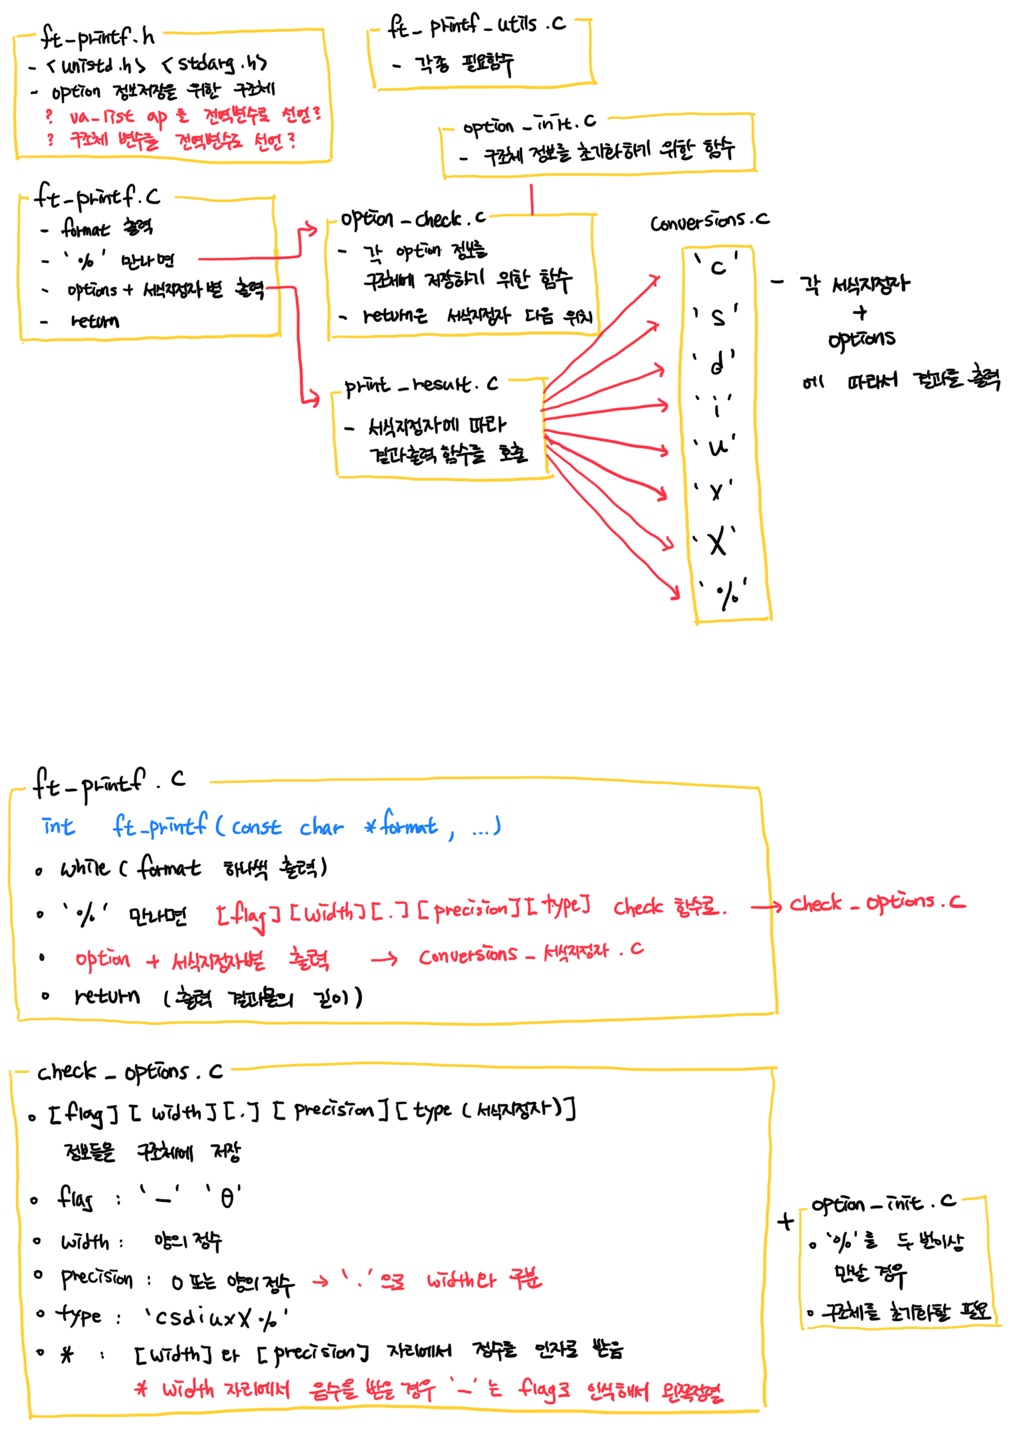 ft_printf.h
- <unistd.h> <stdarg.h>
- option 정보저장을 위한 구조체
? va_list ap 를 전역변수로 선언?
? 구조체 변수를 전역변수로 선언?
ft_printf_utils.c
- 각종 필요함수
option_init.c
- 구조체 정보를 초기화하기 위한 함수
ft_printf.c
- format 출력
- '%' 만나면
- options + 서식지정자별 출력
- return
option_check.c
- 각 option 정보를
구조체에 저장하기 위한 함수
- return은 서식지정자 다음 위치
print_result.c
- 서식지정자에 따라
결과출력 함수를 호출
conversions.c
'c'
's'
'd'
'i'
'u'
'x'
'X'
'%'
- 각 서식지정자
+
options
에 따라서 결과를 출력
ft_printf.c
int ft_printf(const char *format, ...)
• while(format 하나씩 출력)
• '%' 만나면 [flag][width][.][precision][type] check 함수로. → check_options.c
• option + 서식지정자별 출력 → conversions_서식지정자.c
• return (출력 결과물의 길이)
check_options.c
• [flag][width][.][precision][type(서식지정자)]
정보들을 구조체에 저장
• flag : '-' '0'
• width : 양의 정수
• precision : 0 또는 양의 정수 → '.'으로 width와 구분
• type : 'csdiuxX%'
• * : [width]와 [precision] 자리에서 정수를 인자로 받음
* width 자리에서 음수를 받을 경우 '-'는 flag로 인식해서 왼쪽정렬
+
option_init.c
• '%'를 두 번이상
만날 경우
• 구조체를 초기화할 필요